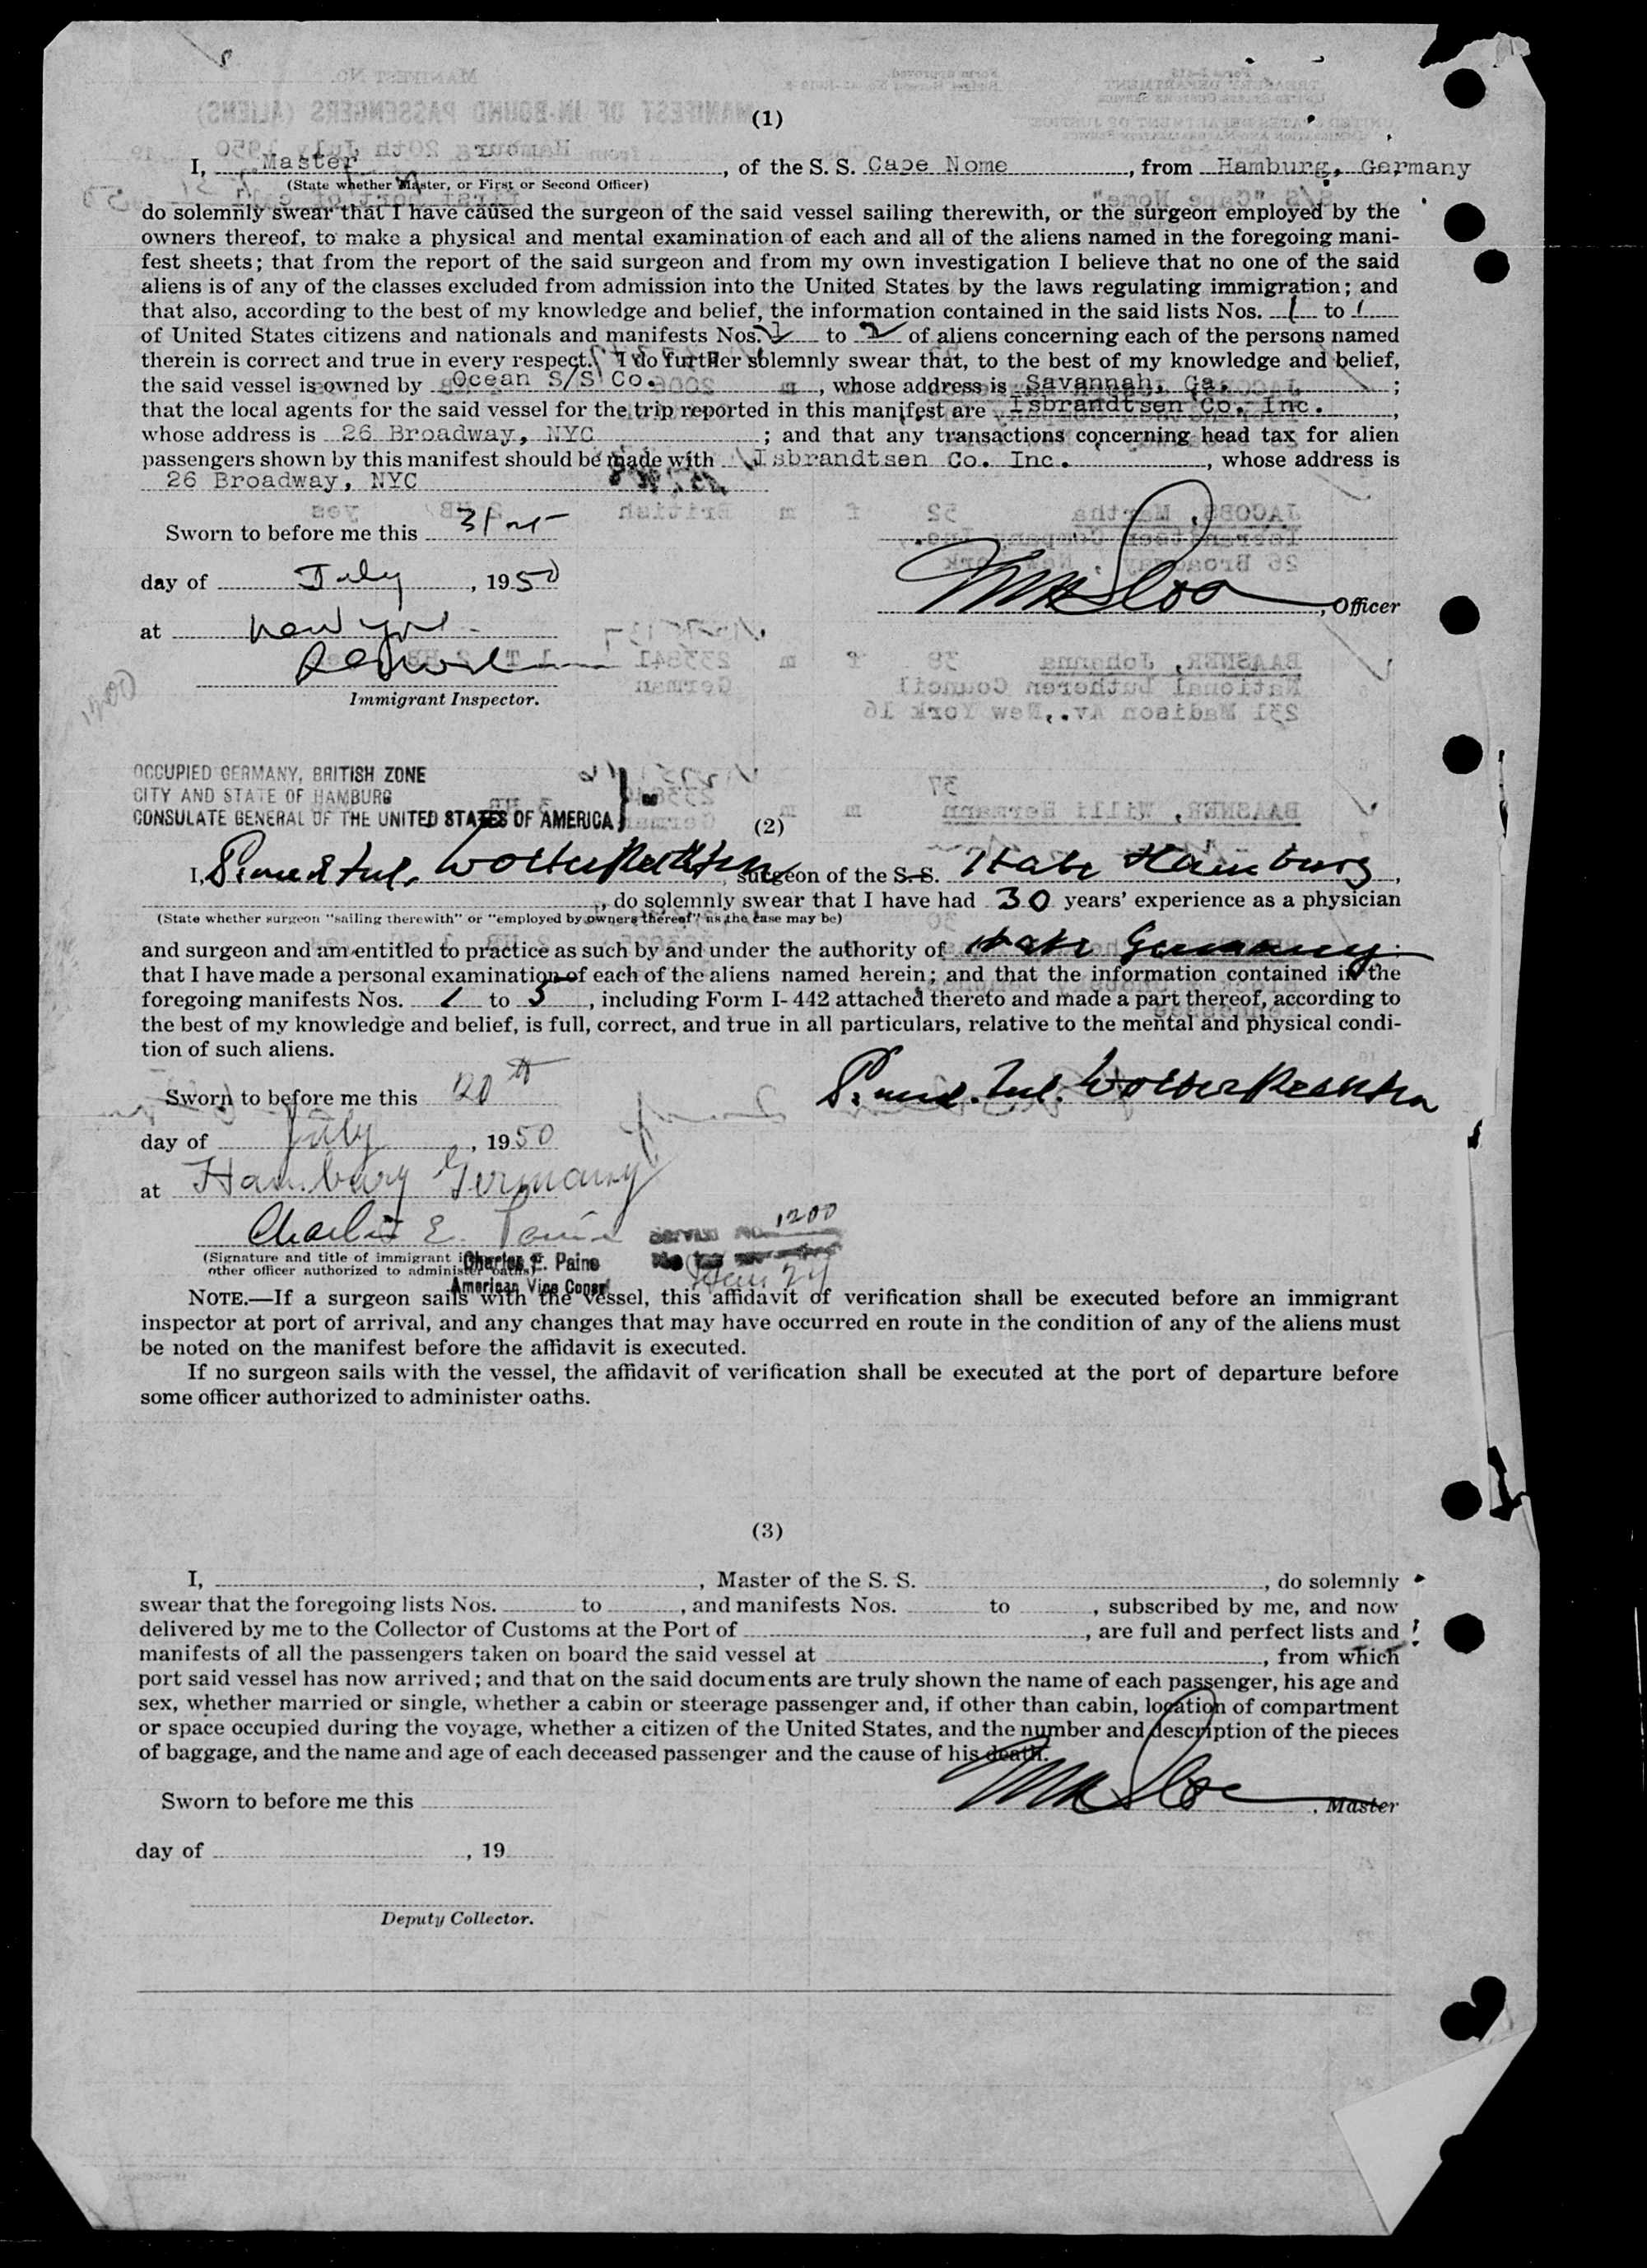 (1)
I, Master, of the S. S. Cape Nome, from Hamburg, Germany
(State whether Master, or First or Second Officer)
do solemnly swear that I have caused the surgeon of the said vessel sailing therewith, or the surgeon employed by the
owners thereof, to make a physical and mental examination of each and all of the aliens named in the foregoing mani-
fest sheets; that from the report of the said surgeon and from my own investigation I believe that no one of the said
aliens is of any of the classes excluded from admission into the United States by the laws regulating immigration; and
that also, according to the best of my knowledge and belief, the information contained in the said lists Nos. 1 to 1
of United States citizens and nationals and manifests Nos. to 2 of aliens concerning each of the persons named
therein is correct and true in every respect. I do further solemnly swear that, to the best of my knowledge and belief,
the said vessel is owned by Ocean S/S Co., whose address is Savannah, Ga. ;
that the local agents for the said vessel for the trip reported in this manifest are Isbrandtsen Co. Inc. ,
whose address is 26 Broadway, NYC ; and that any transactions concerning head tax for alien
passengers shown by this manifest should be made with Isbrandtsen Co. Inc. , whose address is
26 Broadway, NYC
Sworn to before me this 31st
day of July, 1950
, Officer
at New York
Immigrant Inspector.
OCCUPIED GERMANY, BRITISH ZONE
CITY AND STATE OF HAMBURG
CONSULATE GENERAL OF THE UNITED STATES OF AMERICA
(2)
I, , surgeon of the S. S. State Hamburg,
, do solemnly swear that I have had 30 years' experience as a physician
(State whether surgeon "sailing therewith" or "employed by owners thereof" as the case may be)
and surgeon and am entitled to practice as such by and under the authority of State Germany
that I have made a personal examination of each of the aliens named herein; and that the information contained in the
foregoing manifests Nos. 1 to 3, including Form I-442 attached thereto and made a part thereof, according to
the best of my knowledge and belief, is full, correct, and true in all particulars, relative to the mental and physical condi-
tion of such aliens.
Sworn to before me this 20th
day of July, 1950
at Hamburg Germany
Charles E. Paine
1200
(Signature and title of immigrant
other officer authorized to administer oaths)
Charles E. Paine
American Vice Consul
NOTE.—If a surgeon sails with the vessel, this affidavit of verification shall be executed before an immigrant
inspector at port of arrival, and any changes that may have occurred en route in the condition of any of the aliens must
be noted on the manifest before the affidavit is executed.
If no surgeon sails with the vessel, the affidavit of verification shall be executed at the port of departure before
some officer authorized to administer oaths.
(3)
I, , Master of the S. S. , do solemnly
swear that the foregoing lists Nos. to , and manifests Nos. to , subscribed by me, and now
delivered by me to the Collector of Customs at the Port of , are full and perfect lists and
manifests of all the passengers taken on board the said vessel at , from which
port said vessel has now arrived; and that on the said documents are truly shown the name of each passenger, his age and
sex, whether married or single, whether a cabin or steerage passenger and, if other than cabin, location of compartment
or space occupied during the voyage, whether a citizen of the United States, and the number and description of the pieces
of baggage, and the name and age of each deceased passenger and the cause of his death.
Sworn to before me this
, Master
day of , 19
Deputy Collector.